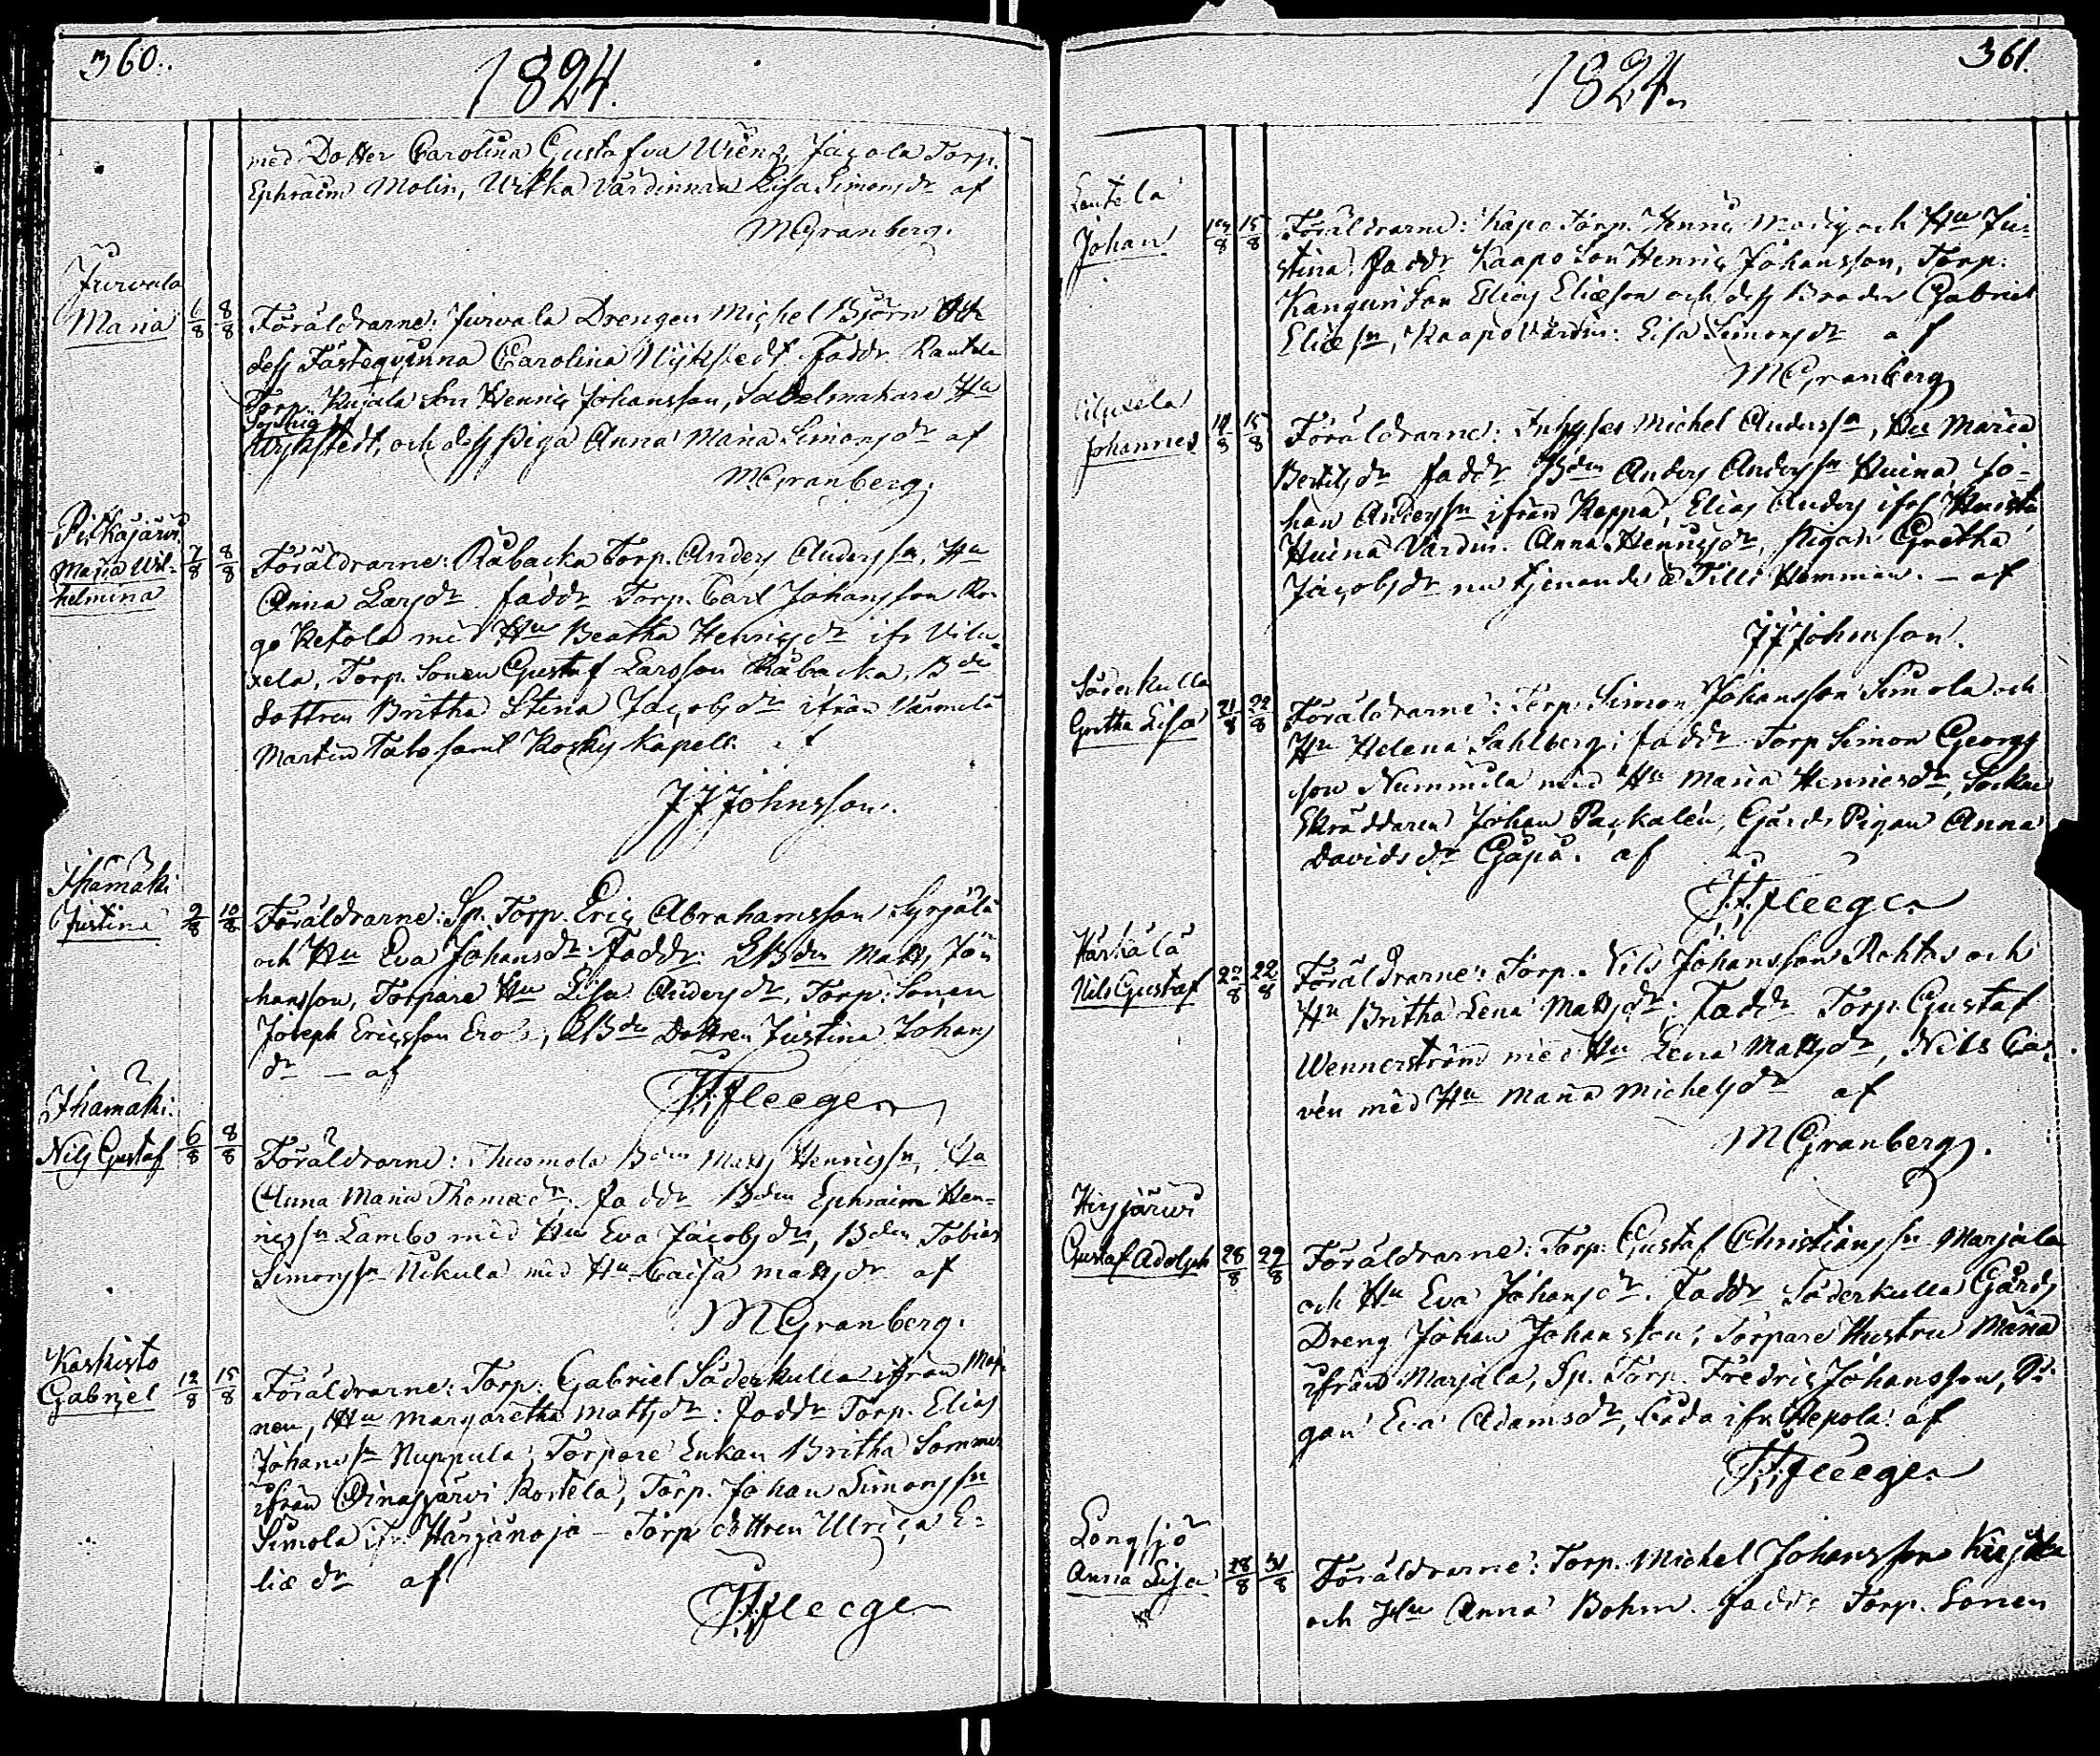 360.
1824.
med Dotter Carolina Gustafva Wiens, Jacola Torp.
Ephraim Molin, Uikka Värdinnan Lisa Simonsdr af
MGranberg.
Jurvala
Maria 6/8 8/8 Föräldrarne: Jurvala Drengen Michel Björn och
dess Fästeqvinna Carolina Nykstedt. Faddr Rautela
Torp. Kujala Son Henric Johansson, Sadelmakare Hu
Nykstedt, och dess Piga Anna Maria Simonsdr af
MGranberg.
Pitkäjärvi
Maria Wil- 7/8 8/8 Föräldrarne: Råbacka Torp. Anders Anderssn, Hu
helmina
Anna Larsdr faddr Torp. Carl Johansson Ro-
go Ketola med Hu Beatha Henricsdr ifr Vilu-
xela, Torp. Sonen Gustaf Larsson Råbacka, Bde
dottren Britha Stina Jacobsdr ifrån Värmelä
Martin Tabo samt Kosky Kapell. af
JJJohnsson.
Ihamäki
Justina 9/8 10/8 Föräldrarne: Sp. Torp. Eric Abrahamsson Syrjälä
och Hu Eva Johansdr; Faddr: LBden Matts Jo-
hansson, Torpare Hu Lisa Andersdr, Torp. Sonen
Joseph Ericsson Ero, LBde Dottren Justina Johans
dr — af
Ihamäki.
Nils Gustaf 6/8 8/8 Föräldrarne: Thuomola Bden Matts Henricssn, Hu
Anna Maria Thomædr. Faddr Bden Ephraim Hen-
ricssn Lambo med Hu Eva Jacobsdr, Bden Tobias
Simonssn Nikula med Hu Caisa Mattsdr af
MGranberg.
Kaskisto
Gabriel 12/8 15/8 Föräldrarne: Torp: Gabriel Söderkulla ifrån
nen, Hu Margaretha Mattsdr: Faddr Torp. Elias
Johanssn Nuppula, Torpare Enkan Britha Sommer
ifrån Oinasjärvi Rostela, Torp. Johan Simonssn
Simola ifr. Härjänoja — Torp dottren Ulrica E-
liædr af
361.
1824.
Rautela
Johan 15/8 Föräldrarne: Kapo Torp. Henric Modig och Hu Ju-
stina. Faddr Kaapo Son Henric Johansson, Torp.
Kanguri Son Elias Eliæson och dess Broder Gabriel
Eliæsn, Kaapo Värdin: Lisa Simonsdr af
MGranberg
Viluxela
Johannes 14/8 15/8 Föräldrarne: Inhyses Michel Anderssn, Hu Maria
Bertilsdr faddr Bden Anders Anderssn Huina, Jo-
han Anderssn ifrån Kappa, Elias Anders ifrå
Huina Värdin. Anna Henricsdr, Pigan Gretha
Jacobsdr nu tjenande å Tilli Hemman. — af
JJJohnsson.
Söderkulla
Gretha Lisa 21/8 22/8 Föräldrarne: Torp. Simon Johansson Simola och
Hu Helena Sahlberg; faddr Torp Simon Georgs
son Nummila med Hu Maria Henricsdr, Sockne
Skräddaren Johan Packalén, Gårds Pigan Anna
Davidsdr Gåpå. af
Härkälä
Nils Gustaf 22/8 Föräldrarne: Torp. Nils Johansson Rahtas och
Hu Britha Lena Mattsdr; Faddr Torp. Gustaf
Wennerström med Hu Lena Mattsdr, Nils Ca-
vén med Hu Maria Michelsdr af
MGranberg.
Hirsjärvi
Gustaf Adolph 28/8 29/8 Föräldrarne: Torp. Gustaf Christianssn Marjala
och Hu Eva Johansdr. Faddr Söderkulla Gårds
Dreng Johan Johansson; Torpare Hustru Maria
ifrån Marjala, Sp. Torp. Fredric Johansson, Pi-
gan Eva Adamsdr, båda ifr. Repola. af
Longsjö
Anna Lisa 28/8 31/8 Föräldrarne: Torp. Michel Johansson
och Hu Anna Bohm. Faddr Torp. Sonen